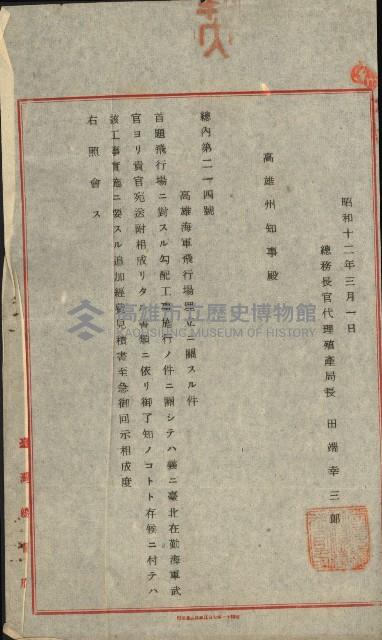 昭和十二年三月一日
總務長官代理殖產局長　田端幸三郎
高雄州知事殿
總內第二一四號
高雄海軍飛行場設立ニ關スル件
首題飛行場ニ對スル勾配工事施行ノ件ニ關シテハ曩ニ臺北在勤海軍武
官ヨリ貴官宛送附相成リタル書類ニ依リ御了知ノコトト存候ニ付テハ
該工事實施ニ要スル追加經費見積書至急御回示相成度
右照會ス
高雄市立歷史博物館
KAOHSIUNG MUSEUM OF HISTORY